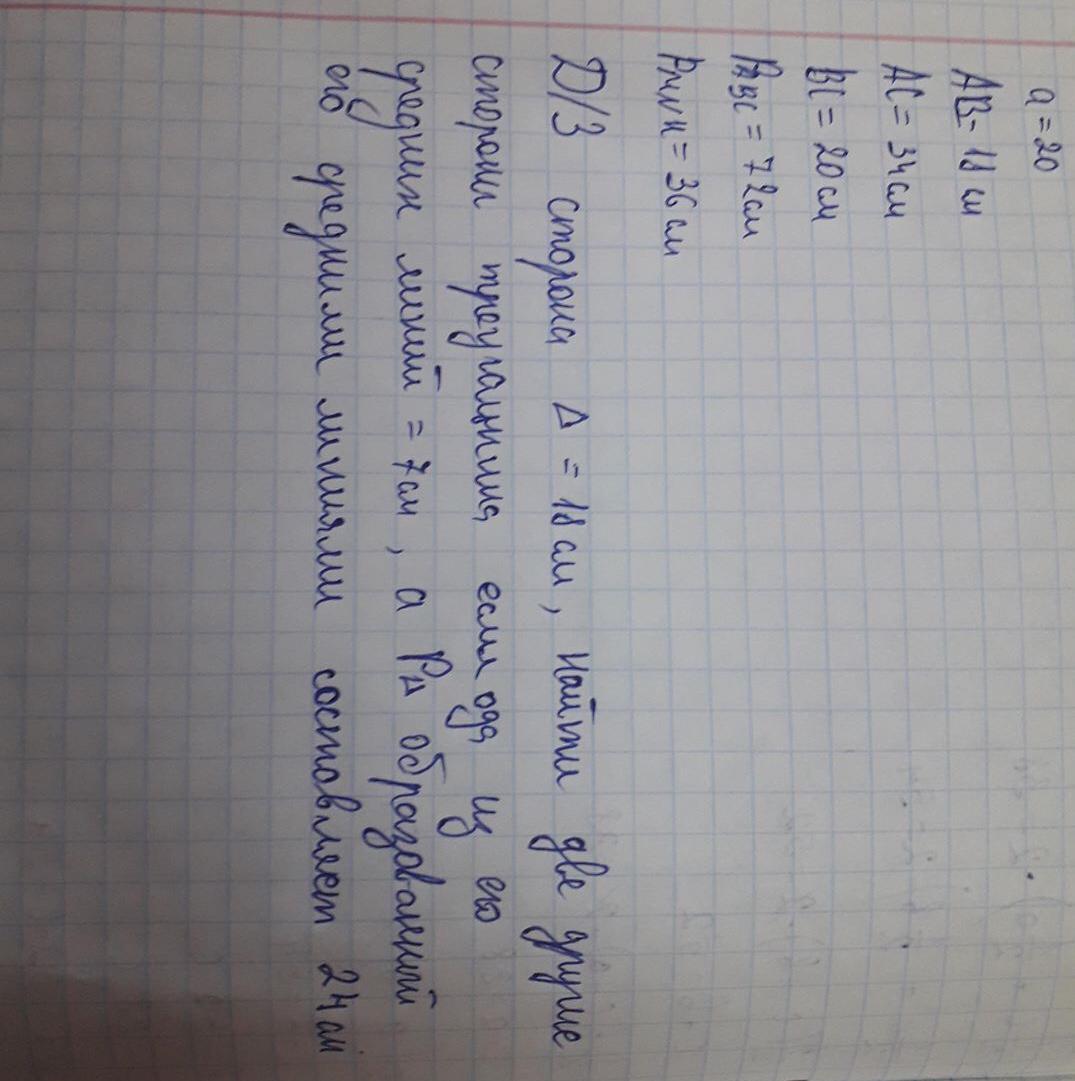 a = 20
AB = 18 см
AC = 34 см
BC = 20 см
PABC = 72 см
PMNK = 36 см
Д/З сторона Δ = 18 см, найти две другие
стороны треугльника если одя из его
средних линий = 7 см, а PΔ образованный
его средними линиями составляет 24 см